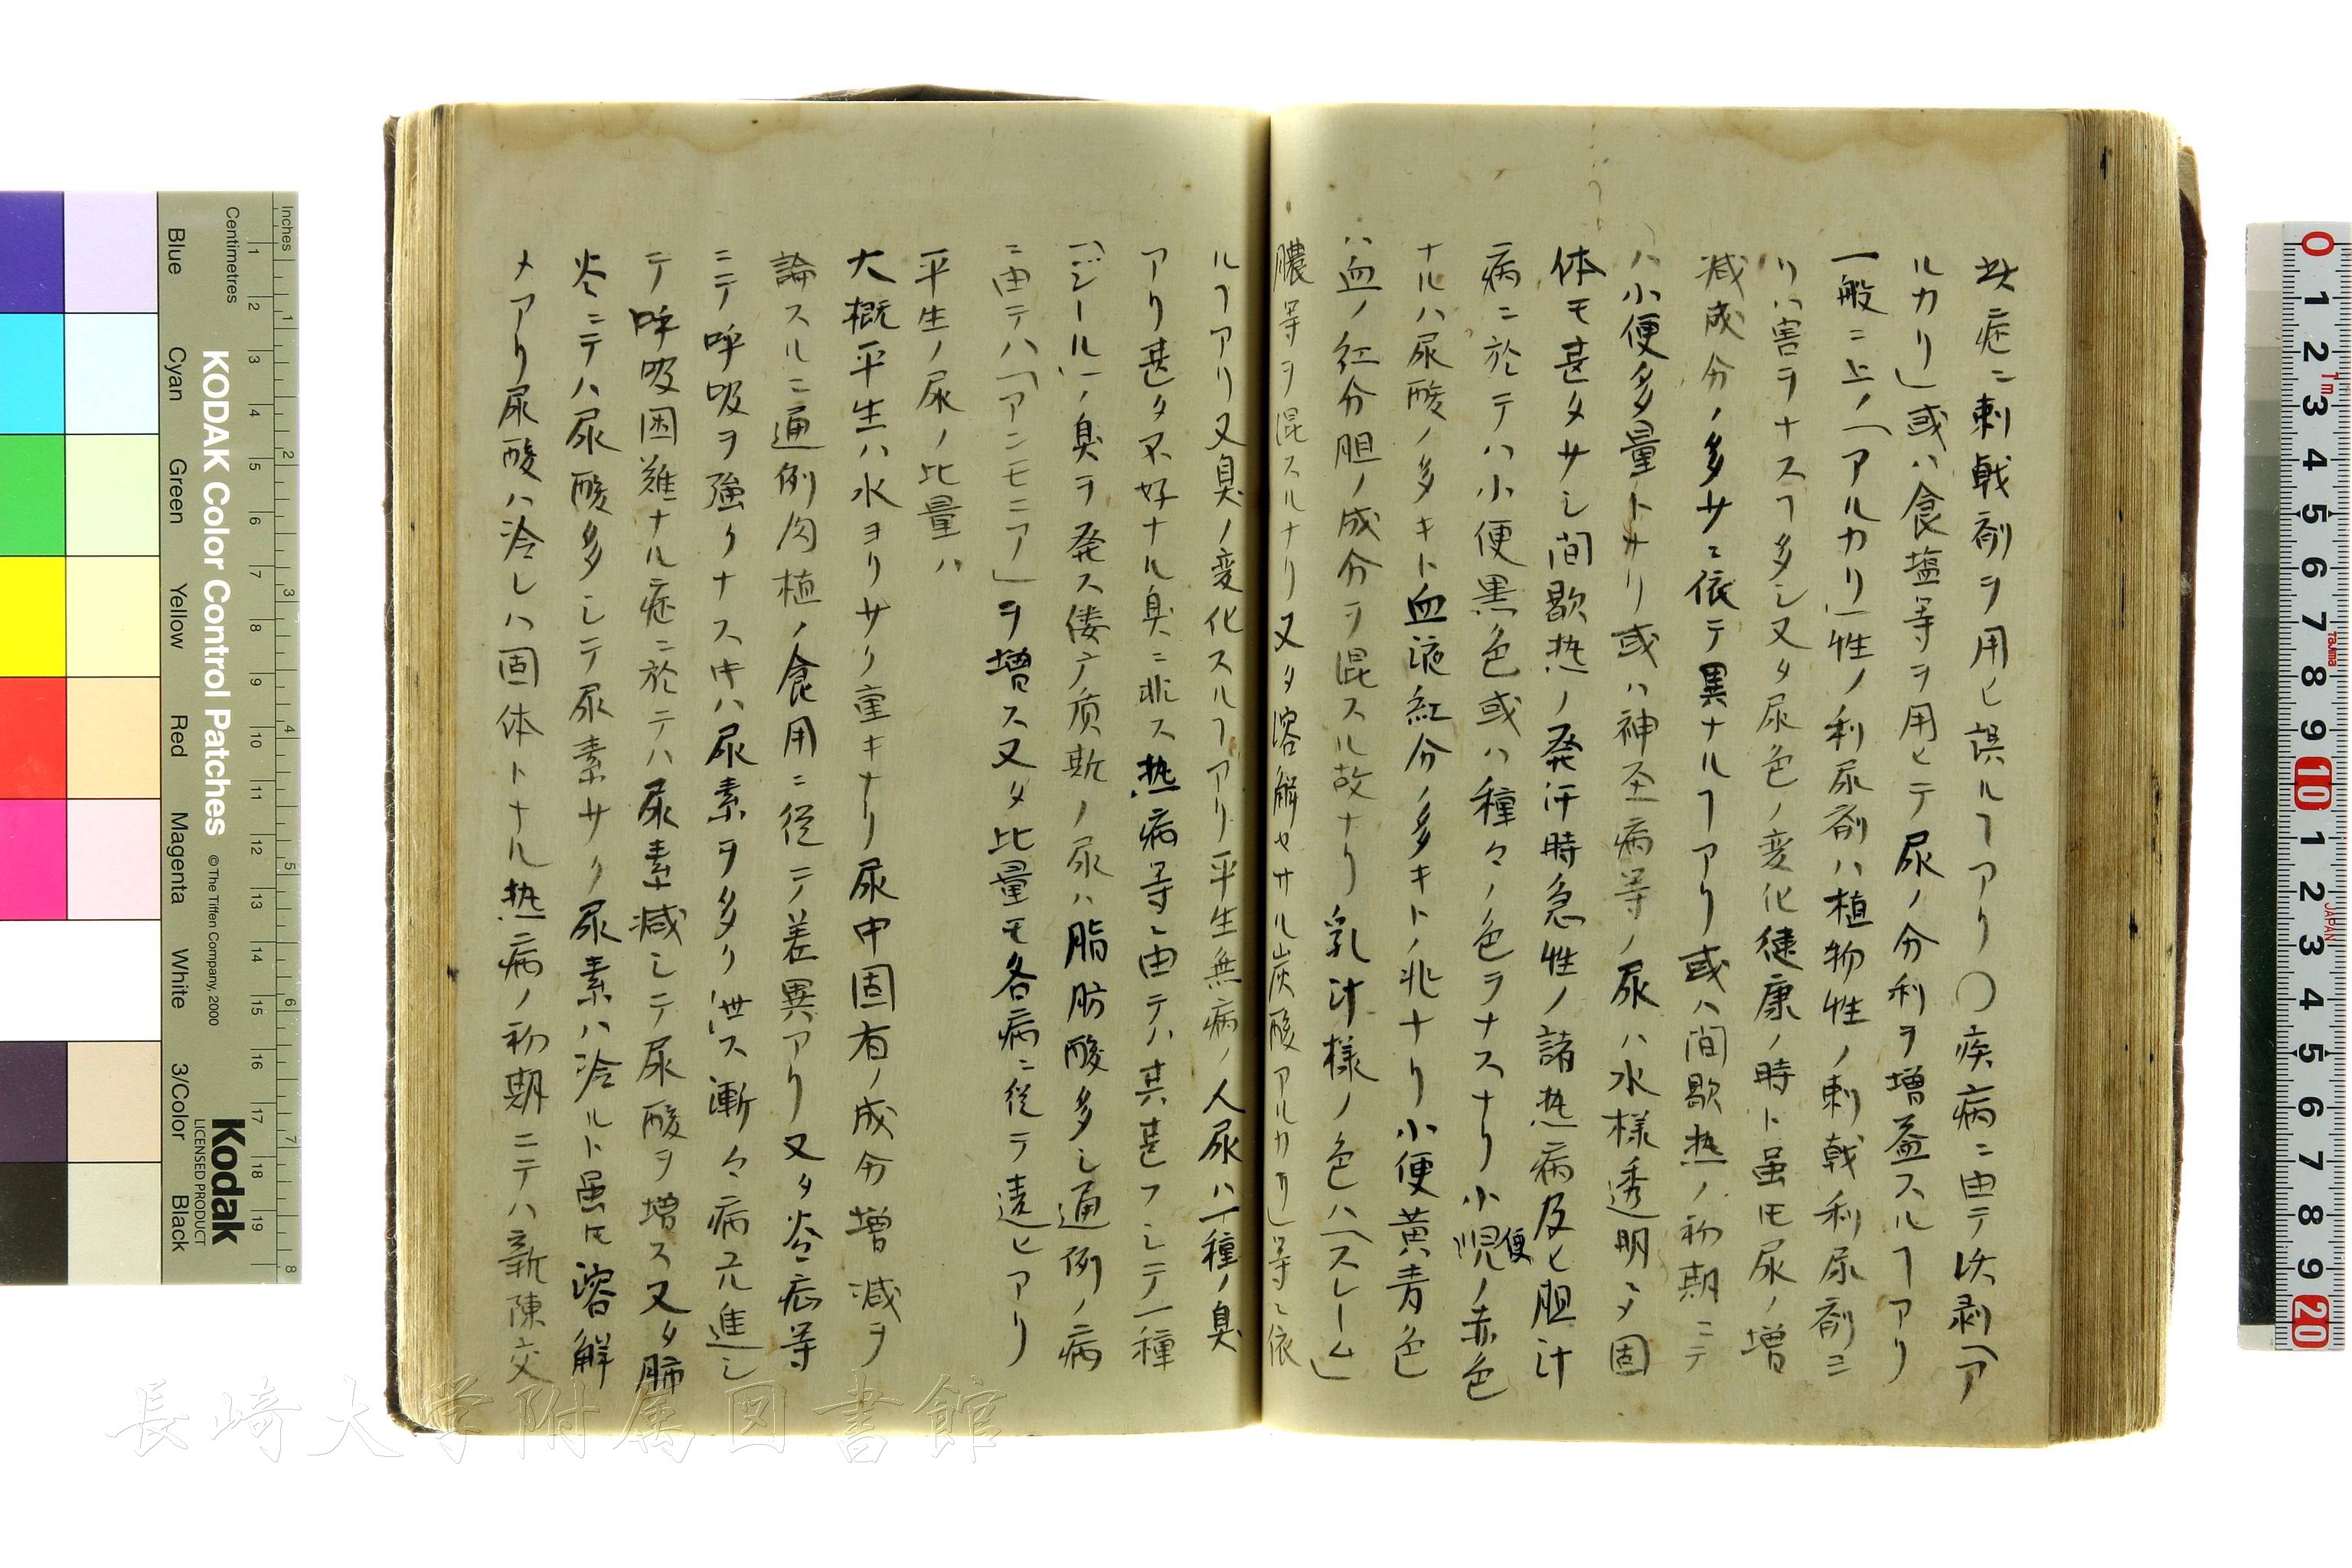 此症ニ刺戟剤ヲ用ヒ誤ルヿアリ〇疾病ニ由テ沃剥「ア
ルカリ」或ハ食塩等ヲ用ヒテ尿ノ分利ヲ増益スルヿアリ
一般ニ上ノ「アルカリ」性ノ利尿剤ハ植物性ノ刺戟利尿剤ヨ
リハ害ヲナスヿ多シ又タ尿色ノ変化健康ノ時ト虽モ尿ノ増
减成分ノ多サニ依テ異ナルヿアリ或ハ間歇热ノ初期ニテ
ハ小便多量トナリ或ハ神圣病等ノ尿ハ水様透明ニタ固
体モ甚タサシ間歇热ノ発汗時急性ノ諸热病及ヒ胆汁
病ニ於テハ小便黒色或ハ種々ノ色ヲナスナリ小児便ノ赤色
ナルハ尿酸ノ多キト血液紅分ノ多キトノ兆ナリ小便黄青色
ハ血ノ紅分胆ノ成分ヲ混スル故ナリ乳汁様ノ色ハ「スレーム」
膿等ヲ混スルナリ又タ溶解セサル炭酸アルカリ」等ニ依
ルヿアリ又臭ノ変化スルヿアリ平生無病ノ人尿ハ一種ノ臭
アリ甚タ不好ナル臭ニ非ス热病等ニ由テハ其甚フシテ一種
「ジール」ノ臭ヲ発ス偻广质斯ノ尿ハ脂肪酸多シ通例ノ病
ニ由テハ「アンモニア」ヲ増ス又タ比量モ各病ニ従テ違ヒアリ
平生ノ尿ノ比量ハ
大概平生ハ水ヨリサク重キナリ尿中固有ノ成分増减ヲ
論スルニ通例肉植ノ食用ニ従テ差異アリ又タ炎症等
ニテ呼吸ヲ強クナス片ハ尿素ヲ多ク泄ス漸々病亢進シ
テ呼吸困難ナル症ニ於テハ尿素减シテ尿酸ヲ増ス又タ肺
炎ニテハ尿酸多シテ尿素サク尿素ハ冷ルト虽モ溶解
メアリ尿酸ハ冷レハ固体トナル热病ノ初期ニテハ新陳交
Inches
Centimetres
Blue
Cyan
Green
Yellow
Red
Magenta
White
3/Color
Black
KODAK Color Control Patches
© The Tiffen Company, 2000
Kodak
LICENSED PRODUCT
長崎大学附属図書館
1m
Tajima
JAPAN